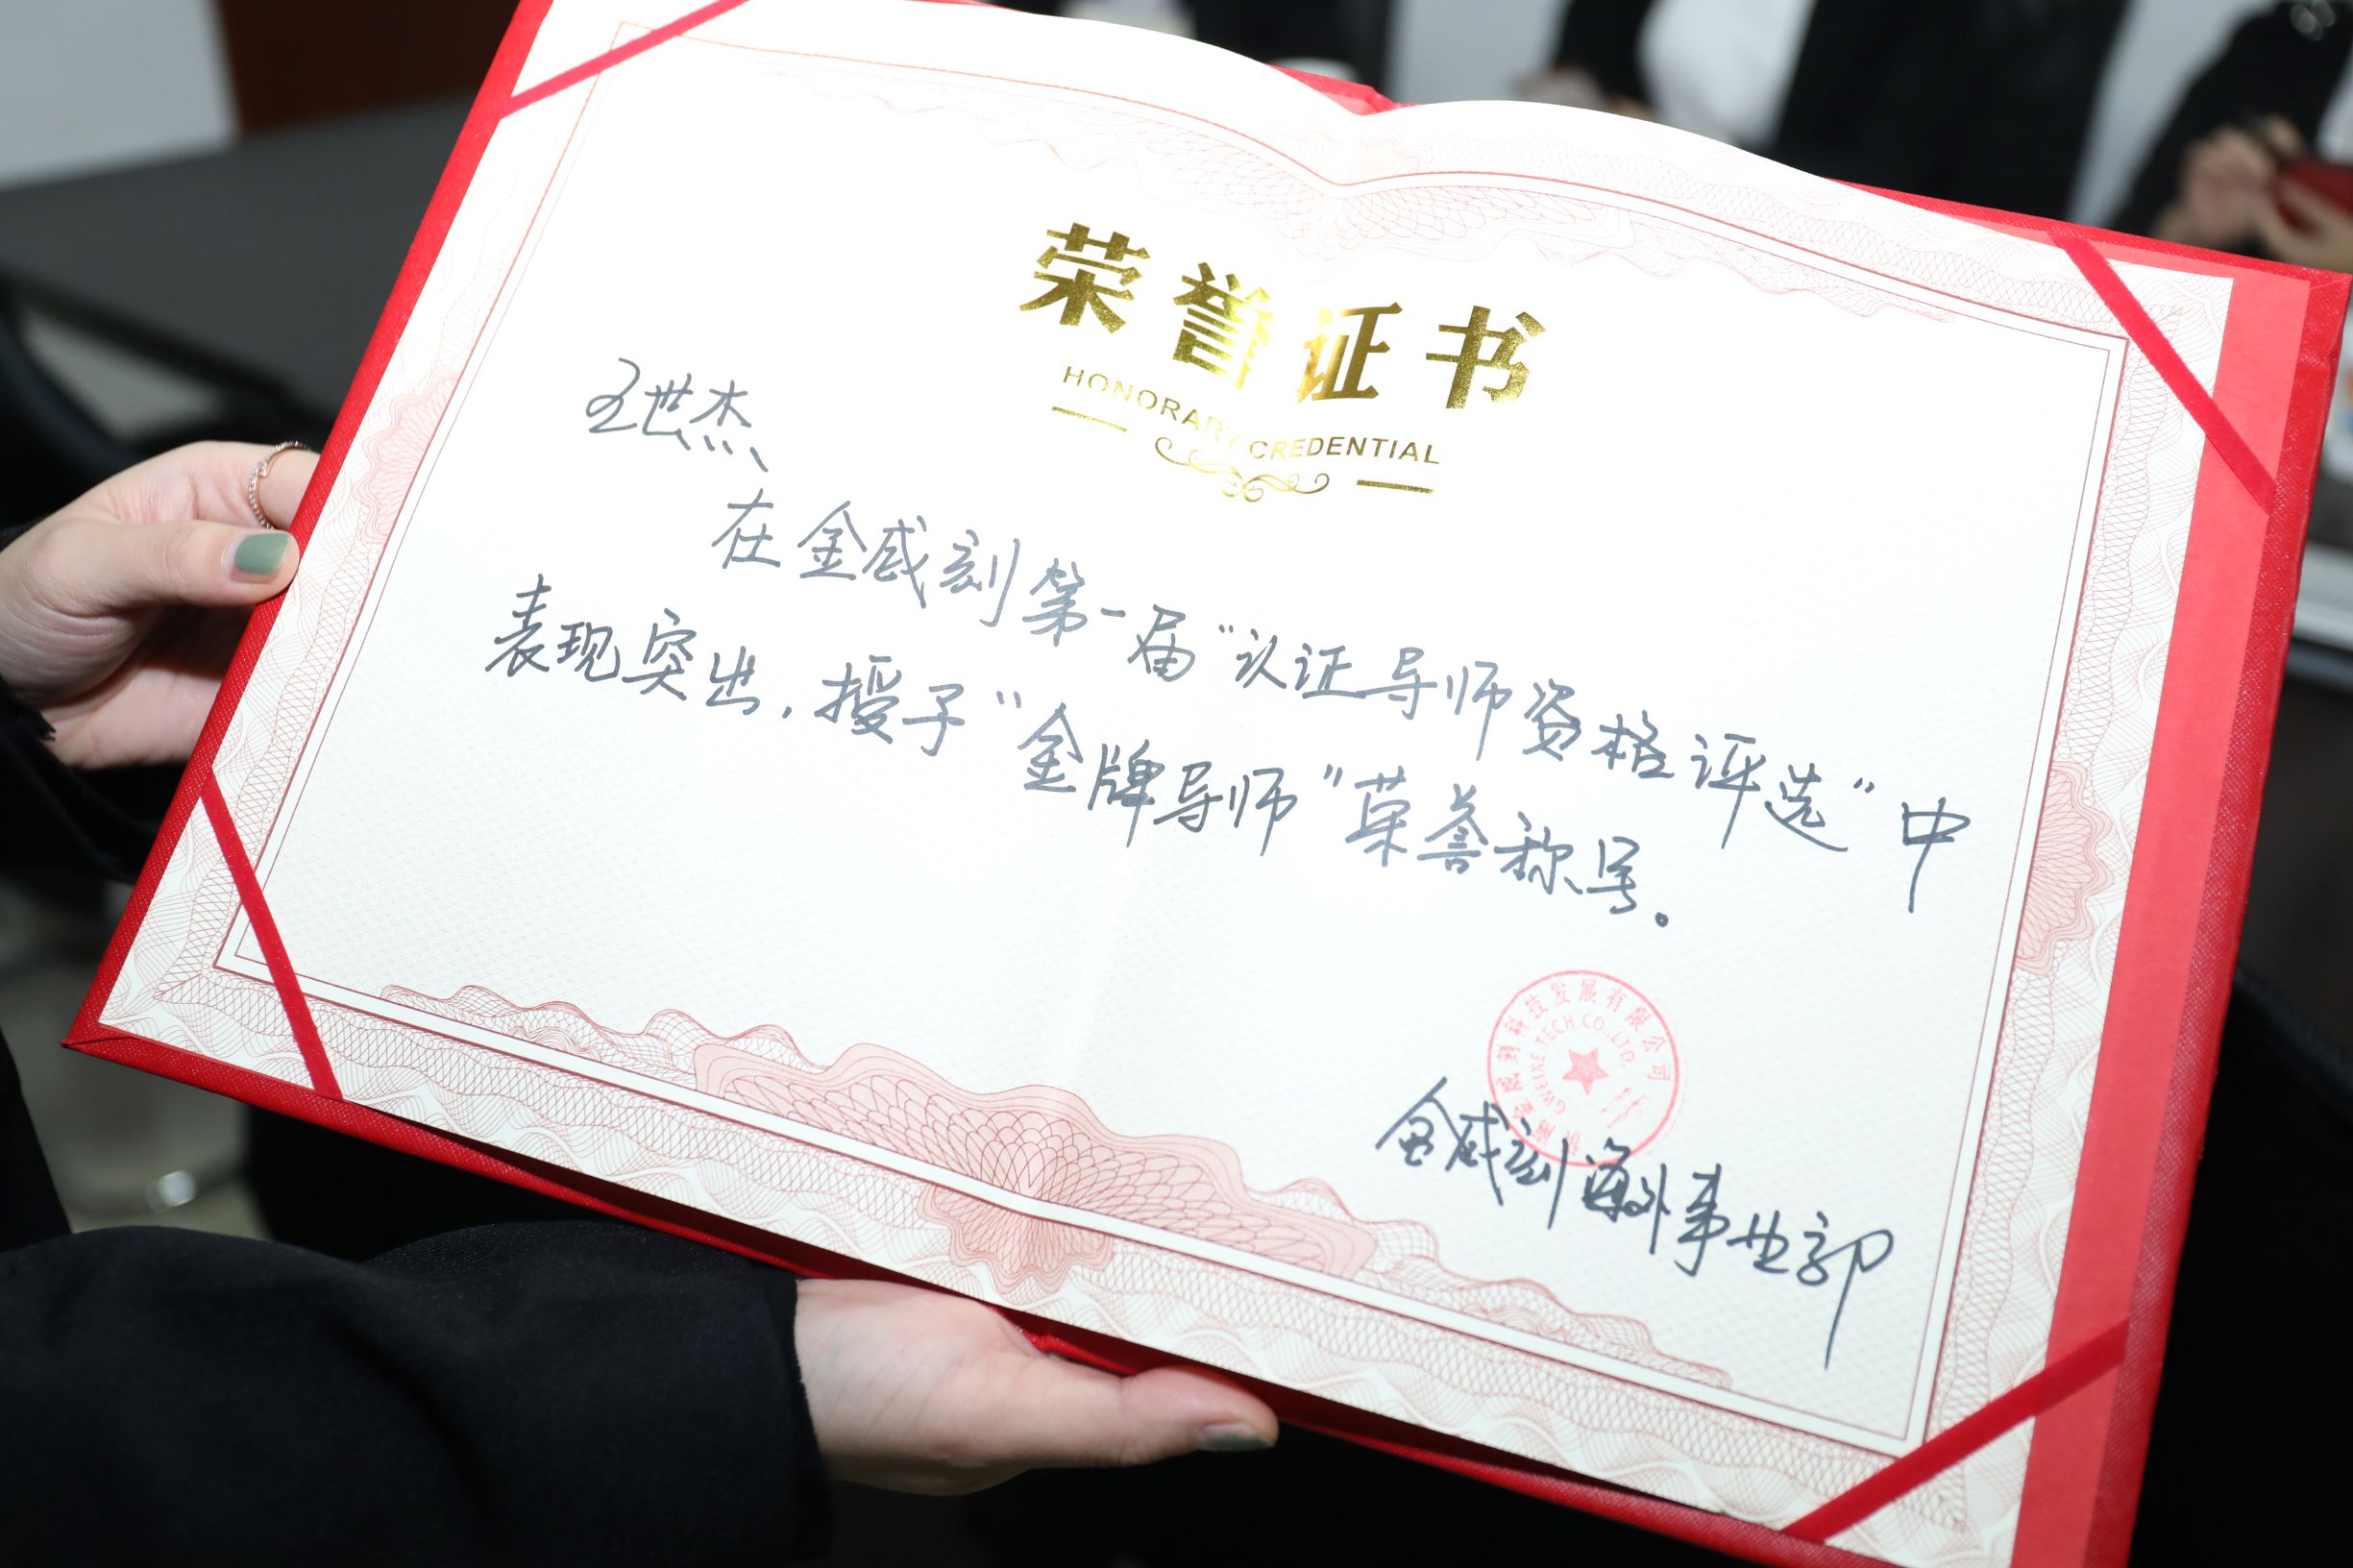 荣誉证书
HONORARY CREDENTIAL
王世杰
在金威刻第一届“认证导师资格评选”中
表现突出，授予“金牌导师”荣誉称号。
济南金威刻科技发展有限公司
GWEIKE TECH CO.,LTD.
金威刻海外事业部